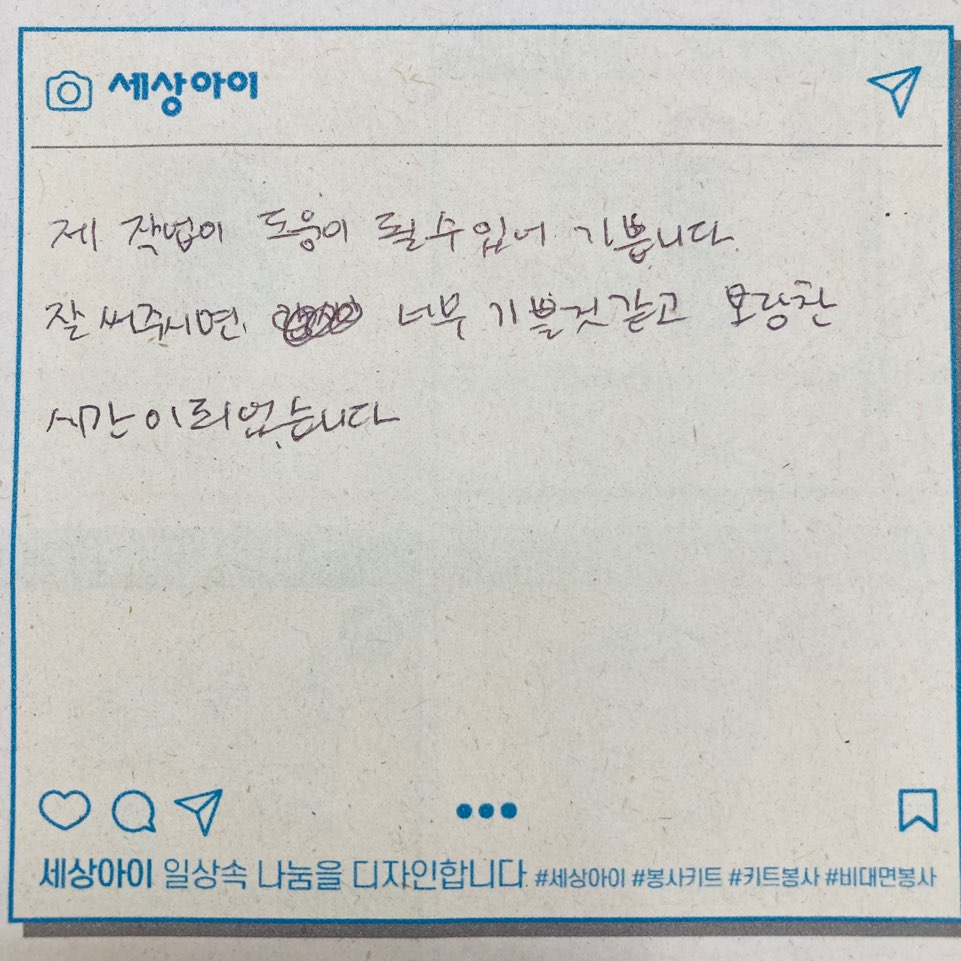 세상아이
제 작업이 도움이 될 수 있어 기쁩니다.
잘 써주시면 너무 기쁠것 같고 보람찬
시간이 되었습니다
세상아이 일상속 나눔을 디자인합니다 #세상아이 #봉사키트 #키트봉사 #비대면봉사